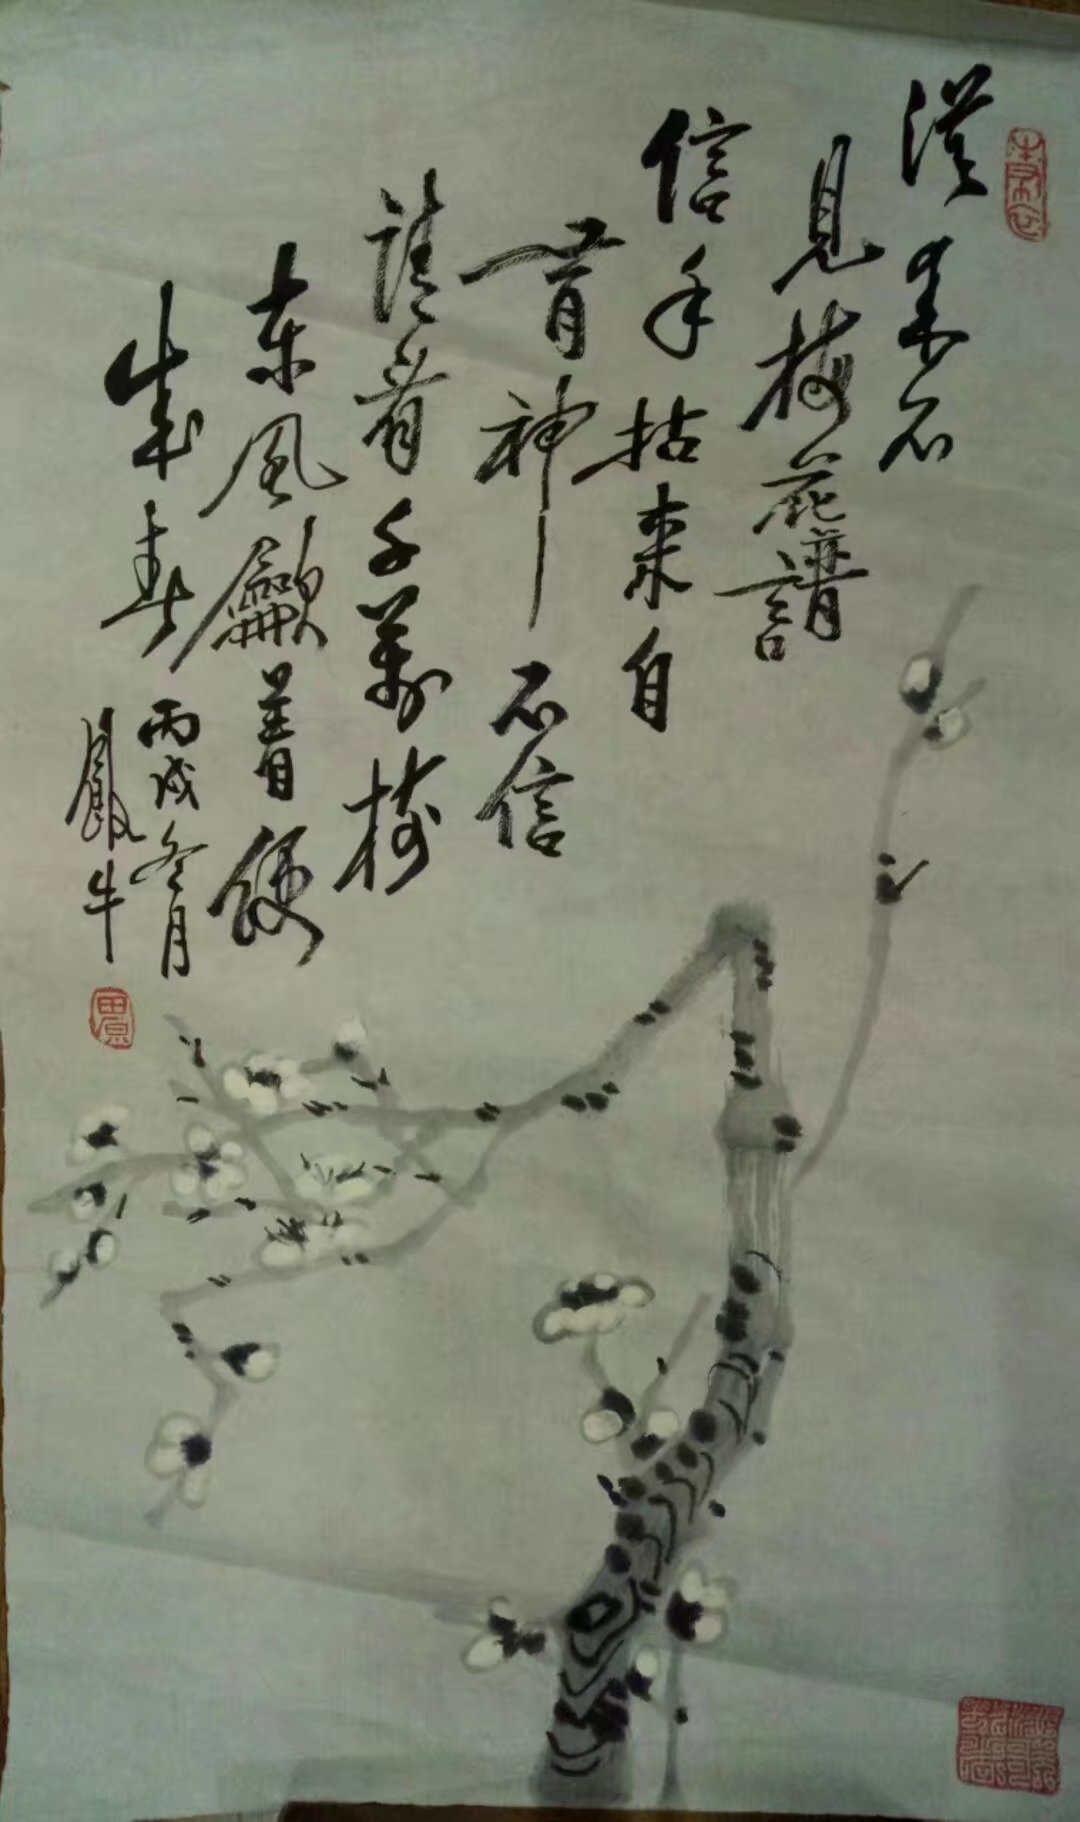 從来不
見梅花譜
信手拈来自
有神不信
請看千萬樹
東風龡着便
成春
丙戌冬月
飯牛
田原